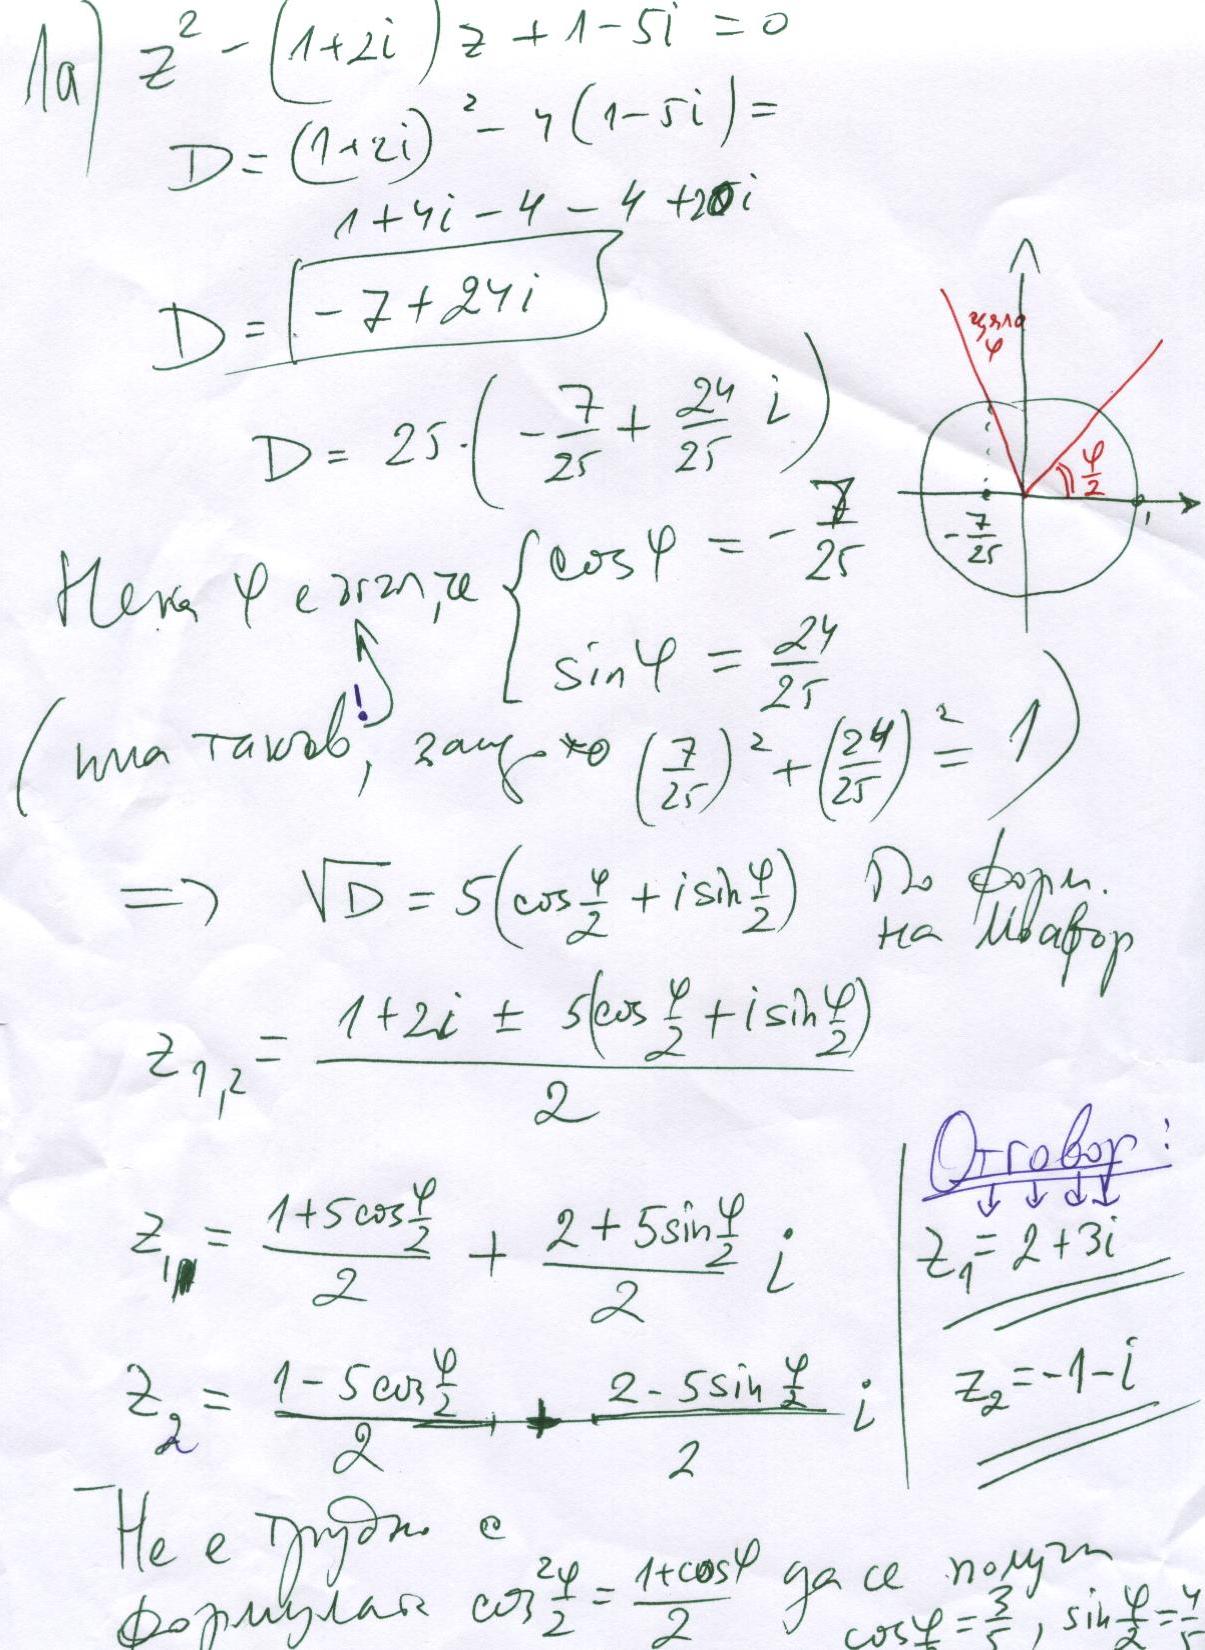 1а) z² - (1+2i) z + 1 - 5i = 0
D = (1+2i)² - 4(1-5i) =
1+4i - 4 - 4 + 20i
D = -7+24i
D = 25·(-7/25 + 24/25 i)
ъгъл φ
φ/2
-7/25
1
Нека φ е ъгъл, че { cosφ = -7/25
sinφ = 24/25
(има такъв!, защото (7/25)² + (24/25)² = 1)
=> √D = 5(cos φ/2 + i sin φ/2) По форм. на Моавър
z1,2 = (1+2i ± 5(cos φ/2 + i sin φ/2))/2
z1 = (1+5cos φ/2)/2 + (2+5sin φ/2)/2 i
z2 = (1-5cos φ/2)/2 + (2-5sin φ/2)/2 i
Отговор:
z1 = 2+3i
z2 = -1-i
Не е трудно с
формулата cos² φ/2 = (1+cosφ)/2 да се получи
cos φ/2 = 3/5, sin φ/2 = 4/5